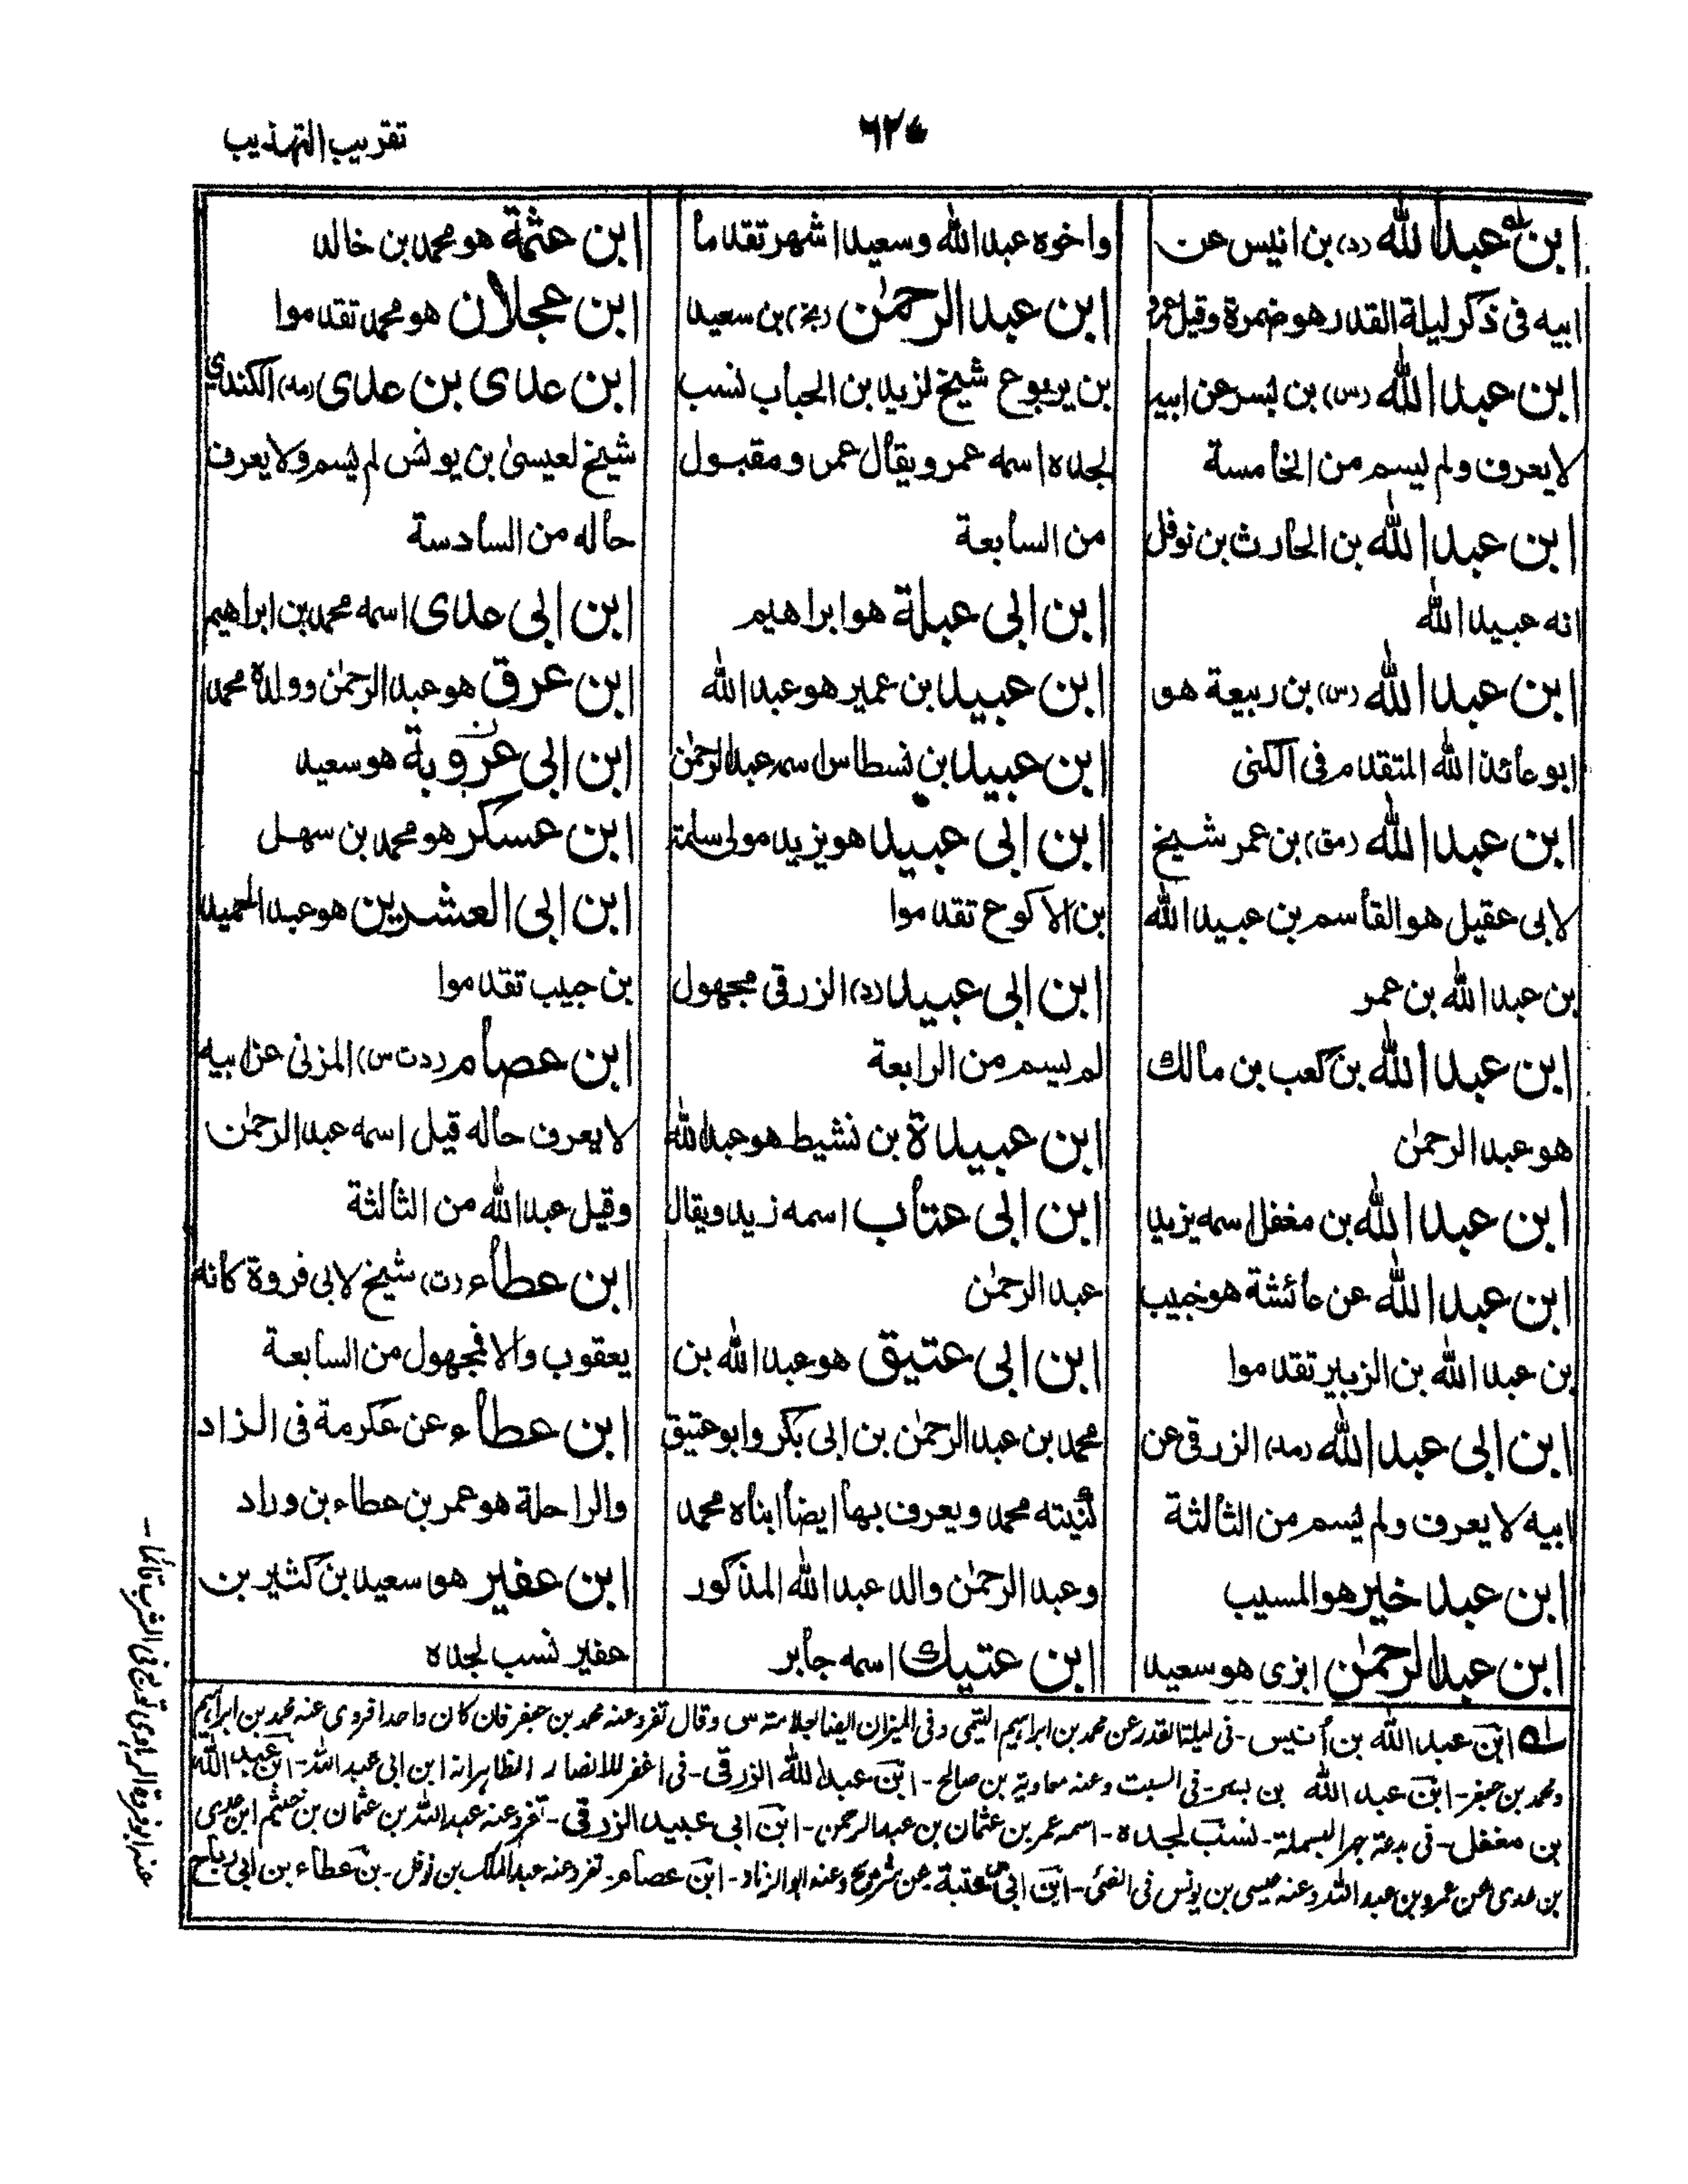 تقريب التهذيب
ابن عبد الله (د) بن انيس عن
ابيه فى ذكر ليلة القدر هو ضمرة وقيل عمرو
ابن عبد الله (س) بن بسر عن ابيه
لا يعرف ولم يسم من الخامسة
ابن عبد الله بن الحارث بن نوفل
انه عبيد الله
ابن عبد الله (س) بن ربيعة هو
ابو عائذ الله المتقدم فى الكنى
ابن عبد الله (مق) بن عمر شيخ
لابى عقيل هو القاسم بن عبيد الله
بن عبد الله بن عمر
ابن عبد الله بن كعب بن مالك
هو عبد الرحمٰن
ابن عبد الله بن مغفل اسمه يزيد
ابن عبد الله عن عائشة هو خبيب
بن عبد الله بن الزبير تقدموا
ابن ابى عبد الله (مد) الزرقى عن
ابيه لا يعرف ولم يسم من الثالثة
ابن عبد خير هو المسيب
ابن عبد الرحمٰن ابزى هو سعيد
واخوه عبد الله وسعيد اشهر تقدما
ابن عبد الرحمٰن (بخ) بن سعيد
بن يربوع شيخ لزيد بن الحباب نسب
لجده اسمه عمرو يقال عمر ومقبول
من السابعة
ابن ابى عبلة هو ابراهيم
ابن عبيد بن عمير هو عبد الله
ابن عبيد بن نسطاس اسمه عبد الرحمٰن
ابن ابى عبيد هو يزيد مولى سلمة
بن الاكوع تقدموا
ابن ابى عبيد (د) الزرقى مجهول
لم يسم من الرابعة
ابن عبيدة بن نشيط هو عبد الله
ابن ابى عتاب اسمه زيد ويقال
عبد الرحمٰن
ابن ابى عتيق هو عبد الله بن
محمد بن عبد الرحمٰن بن ابى بكر وابو عتيق
كنيته محمد ويعرف بها ايضا ابناه محمد
وعبد الرحمٰن والد عبد الله المذكور
ابن عتيك اسمه جابر
ابن عثمة هو محمد بن خالد
ابن عجلان هو محمد تقدموا
ابن عدى بن عدى (مد) الكندي
شيخ لعيسىٰ بن يونس لم يسم ولا يعرف
حاله من السادسة
ابن ابى عدى اسمه محمد بن ابراهيم
ابن عرق هو عبد الرحمٰن وولده محمد
ابن ابى عروبة هو سعيد
ابن عسكر هو محمد بن سهل
ابن ابى العشرين هو عبد الحميد
بن حبيب تقدموا
ابن عصام (د ت س) المزنى عن ابيه
لا يعرف حاله قيل اسمه عبد الرحمٰن
وقيل عبد الله من الثالثة
ابن عطاء (ت) شيخ لابى فروة كانه
يعقوب والا فمجهول من السابعة
ابن عطاء عن عكرمة فى الزاد
والراحلة هو عمر بن عطاء بن وراد
ابن عفير هو سعيد بن كثير بن
عفير نسب لجده
ابن عبد الله بن أنيس - فى ليلة القدر عن محمد بن ابراهيم التيمى وفى الميزان ايضا بعلامته س وقال تفرد عنه محمد بن جعفر فان كان واحدا فروى عنه محمد بن ابراهيم
ومحمد بن جعفر - ابن عبد الله بن بسر - فى السبت وعنه معاوية بن صالح - ابن عبد الله الزرقى - فى اغفر للانصار الظاهر انه ابن ابى عبد الله - ابن عبد الله
بن مغفل - فى بدعة جهر البسملة - نسب لجده - اسمه عمر بن عثمان بن عبد الرحمن - ابن ابى عبيد الزرقى - تفرد عنه عبد الله بن عثمان بن خثيم ابن عدى
بن عدى عن عمرو بن عبد الله وعنه عيسى بن يونس فى الفئ - ابن ابى عتبة - عن شريح وعنه ابو الزناد - ابن عصام - تفرد عنه عبد الملك بن نوفل - بن عطاء بن ابى رباح
عنه ابو فروة الرهاوى